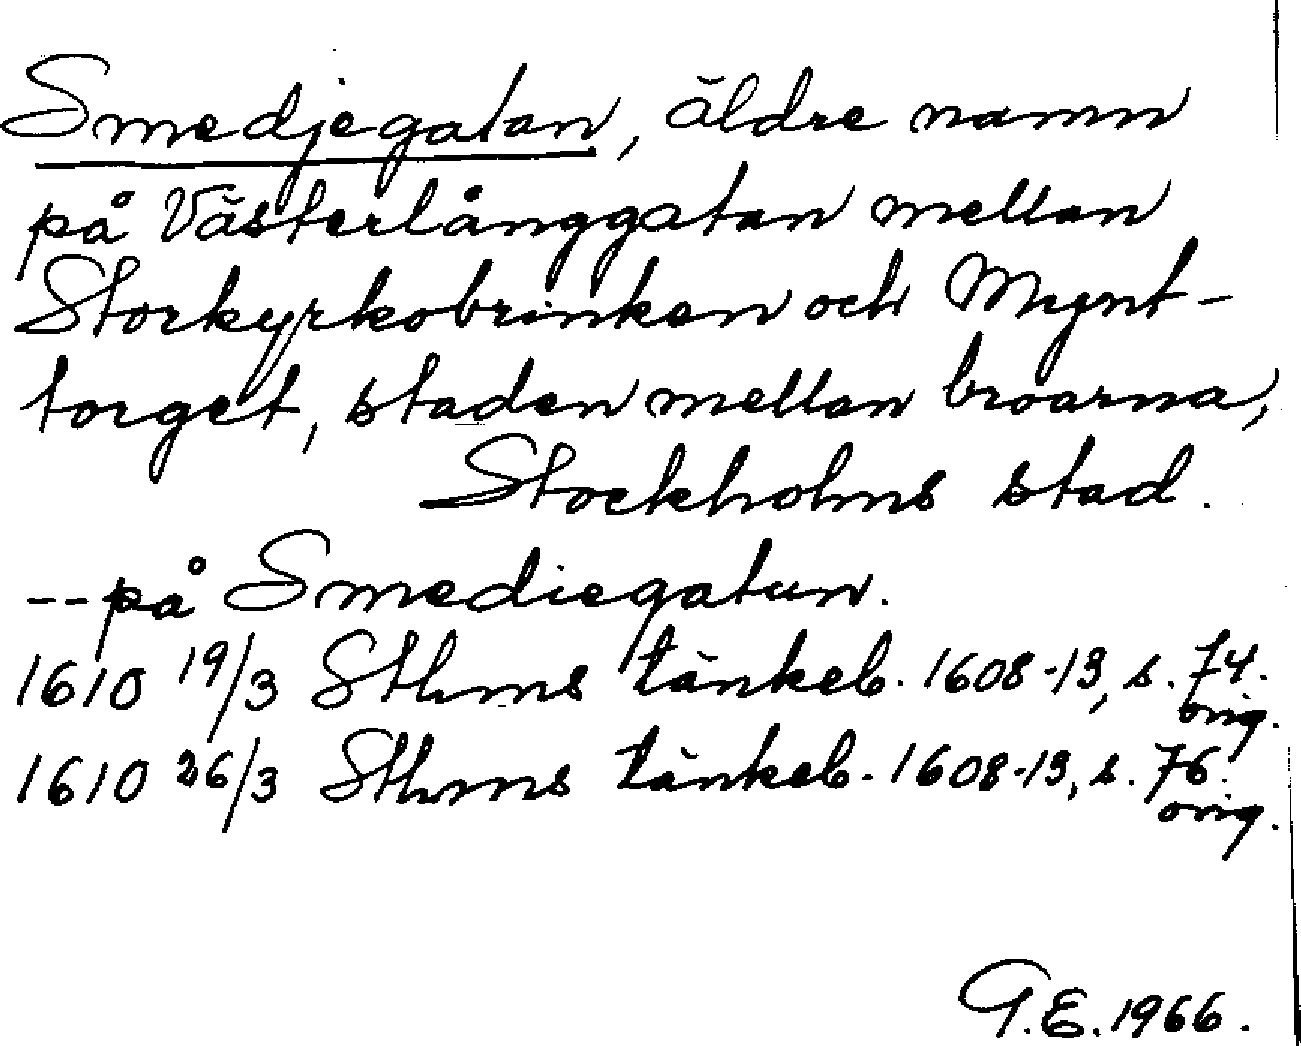 Smedjegatan, äldre namn
på Västerlånggatan mellan
Storkyrkobrinken och Mynt-
torget, staden mellan broarna,
Stockholms stad.
-- på Smediegatun.
1610 19/3 Sthms tänkeb. 1608-13, s. 74.
orig.
1610 26/3 Sthms tänkeb. 1608-13, s. 76.
orig.
G.E. 1966.